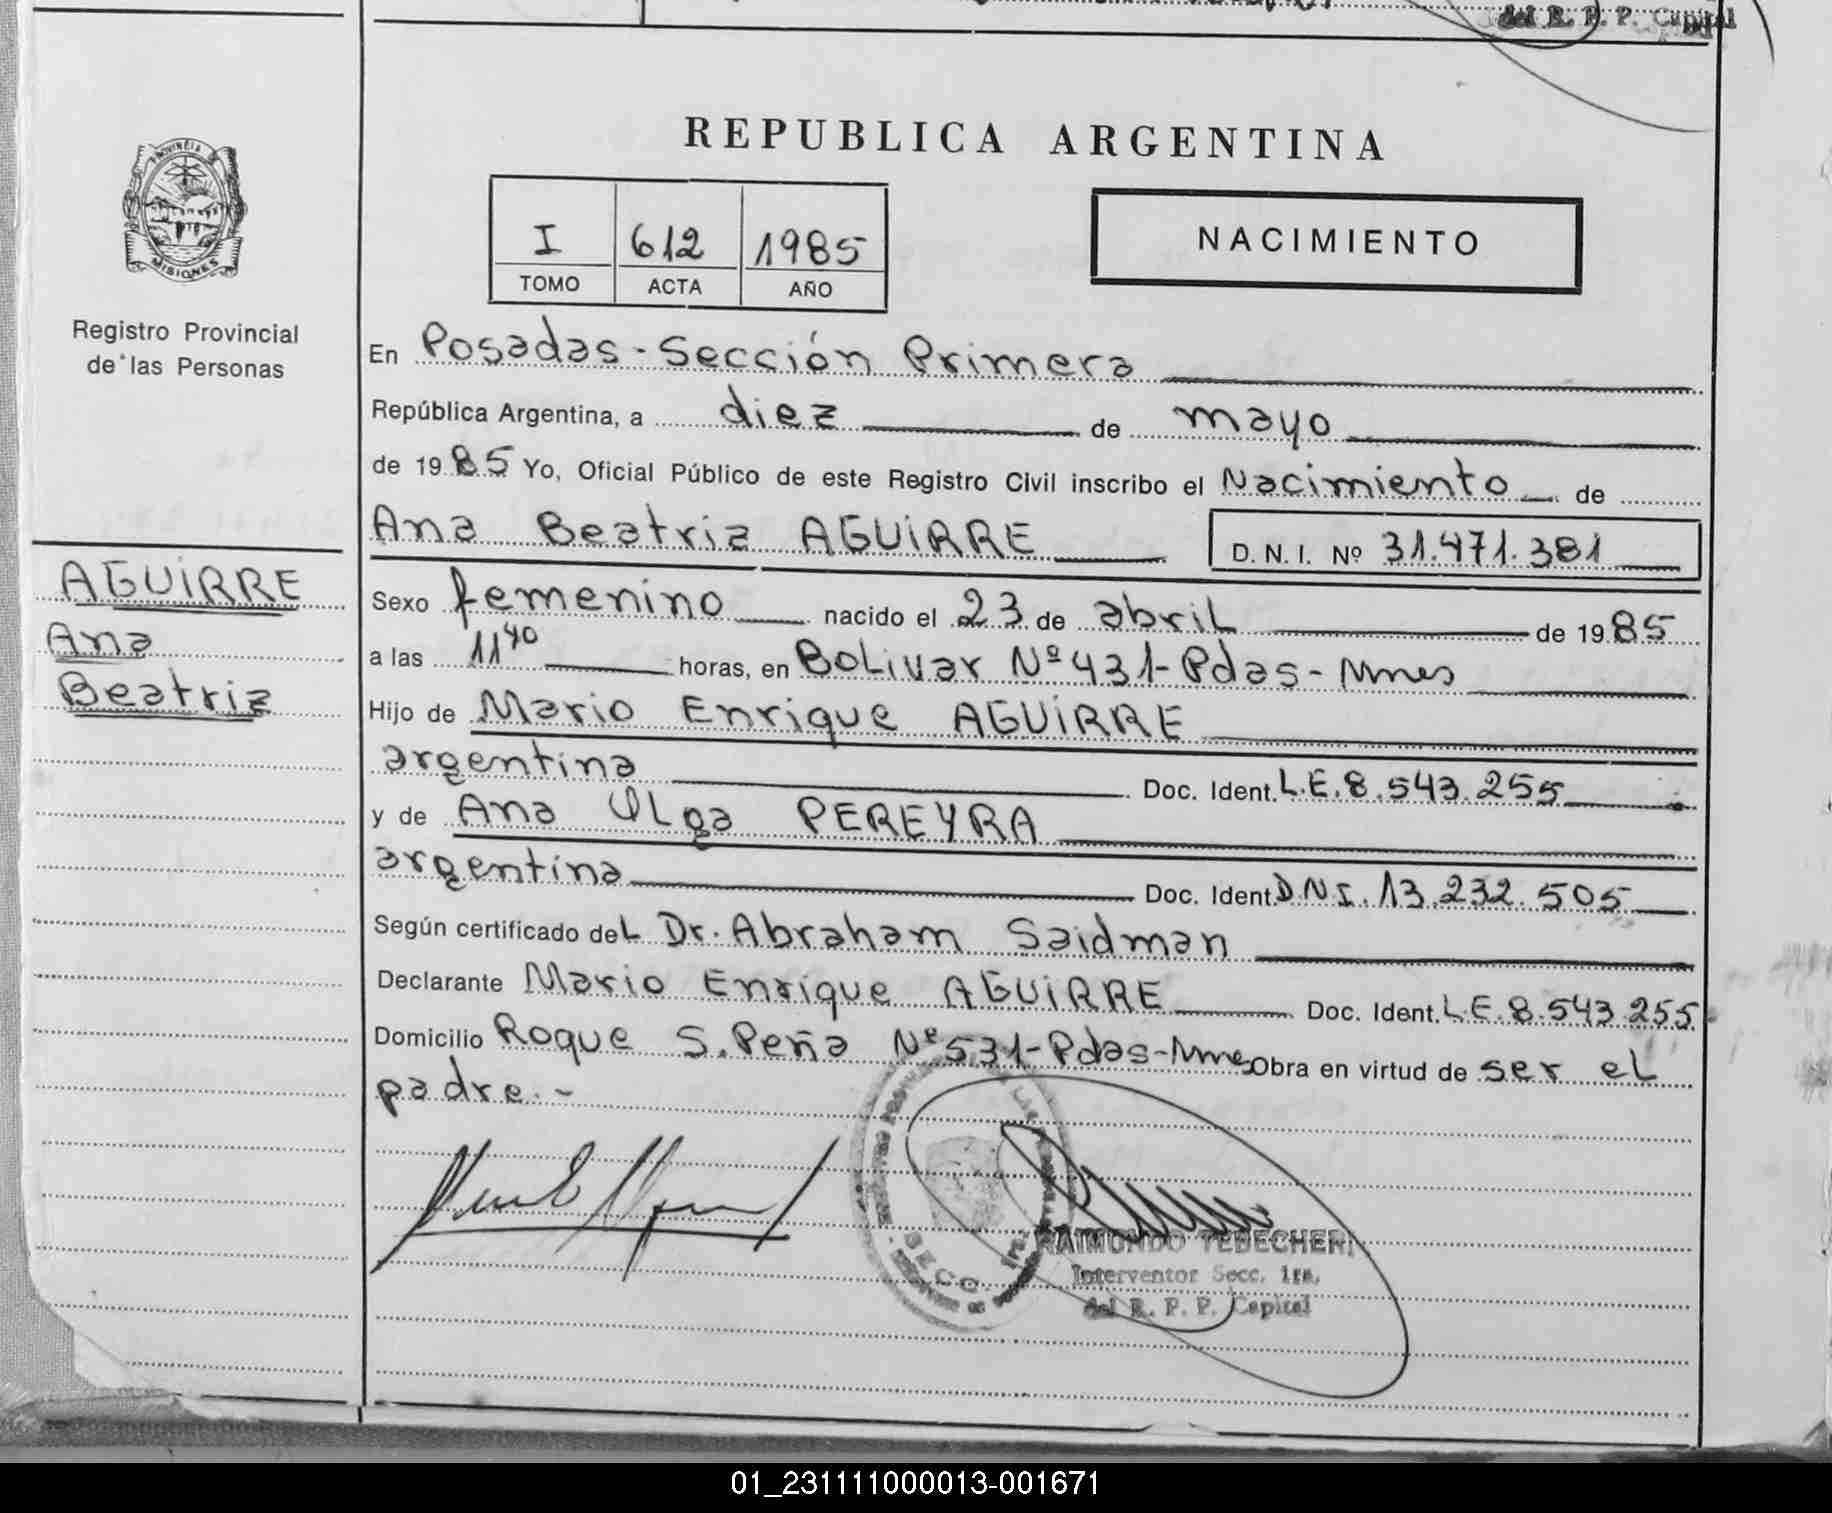 del R. P. P. Capital
PROVINCIA DE
MISIONES
Registro Provincial
de las Personas
REPUBLICA ARGENTINA
I 612 1985
TOMO ACTA AÑO
NACIMIENTO
En Posadas - Sección Primera
República Argentina, a diez de mayo
de 1985 Yo, Oficial Público de este Registro Civil inscribo el Nacimiento de
Ana Beatriz AGUIRRE D. N. I. Nº 31.471.381
AGUIRRE
Ana
Beatriz
Sexo femenino nacido el 23 de abril de 1985
a las 11 40 horas, en Bolivar Nº 431-Pdas-Mnes
Hijo de Mario Enrique AGUIRRE
argentina Doc. Ident. L.E. 8.543.255
y de Ana Olga PEREYRA
argentina Doc. Ident. D.N.I. 13.232.505
Según certificado del Dr. Abraham Saidman
Declarante Mario Enrique AGUIRRE Doc. Ident. L.E. 8.543.255
Domicilio Roque S. Peña Nº 531-Pdas-Mnes Obra en virtud de ser el
padre.-
RAIMONDO TEDECHERI
Interventor Secc. 1ra.
del R. P. P. Capital
01_231111000013-001671